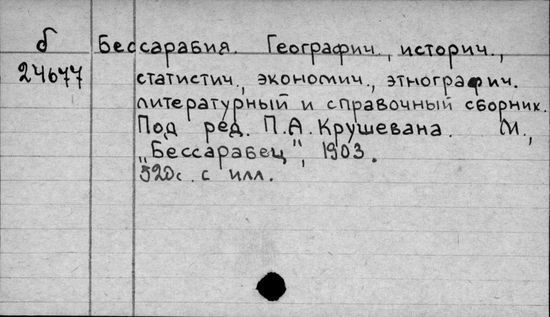 б Бессарабия. Географич., историч.,
24677 статистич., экономич., этнографич.
литературный и справочный сборник.
Под ред. П.А. Крушевана. М.,
„Бессарабец", 1903.
520с. с илл.